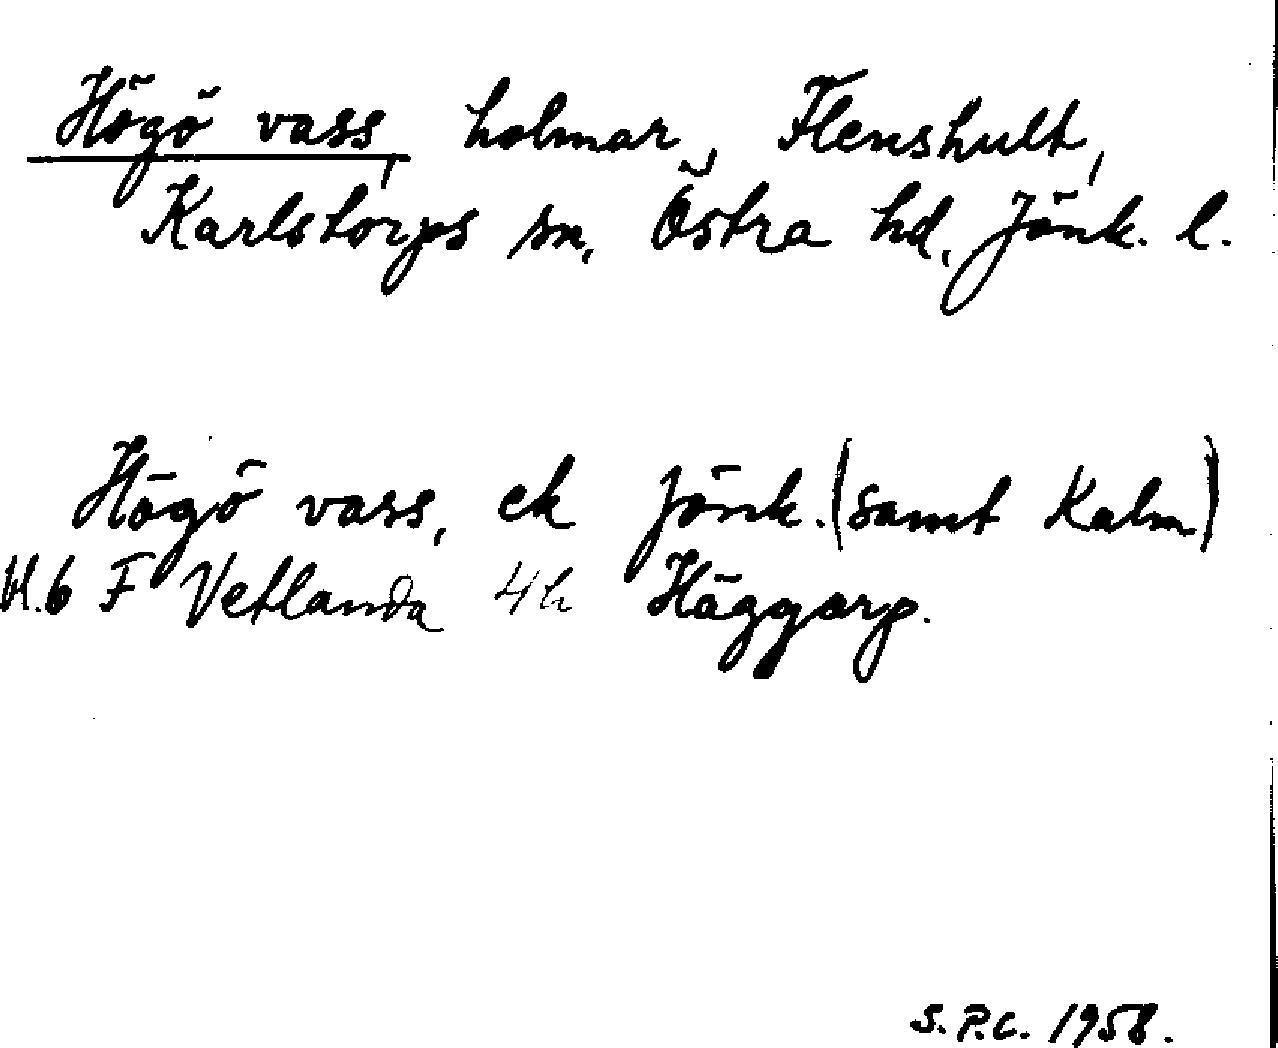 Högö vass, holmar, Flenshult,
Karlstorps sn, Östra hd, Jönk. l.
Högö vass, ek Jönk. (samt Kalm)
bl. 6 F Vetlanda 4h Häggarp.
S.P.C. 1958.